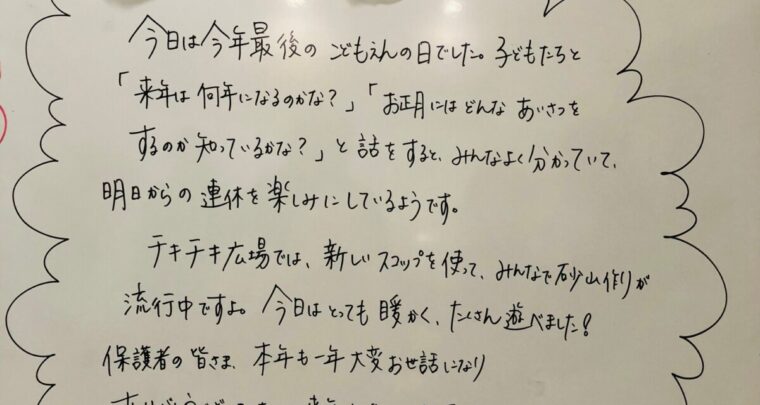 今日は今年最後の こどもえんの日でした。子どもたちと
「来年は 何年になるのかな？」「お正月には どんな あいさつを
するのか 知っているかな？」と 話をすると、みんなよく 分かっていて、
明日からの 連休を 楽しみにしているようです。
チキチキ広場では、新しいスコップを使って、みんなで砂山作りが
流行中ですよ。今日はとっても 暖かく、たくさん遊べました！
保護者の皆さま、本年も一年 大変お世話になり